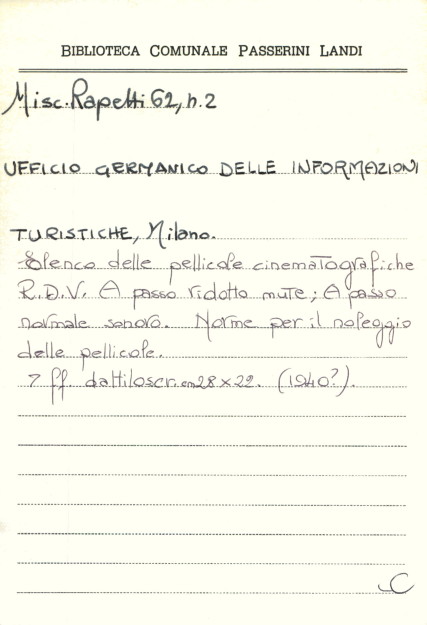 BIBLIOTECA COMUNALE PASSERINI LANDI
Misc. Rapetti 62, n. 2
UFFICIO GERMANICO DELLE INFORMAZIONI
TURISTICHE, Milano.
Elenco delle pellicole cinematografiche
R.D.V. A passo ridotto mute; A passo
normale sonoro. Norme per il noleggio
delle pellicole.
7 ff. dattiloscr. cm 28 x 22. (1940?).
C